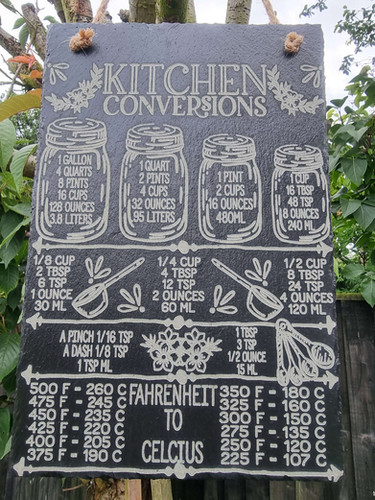 KITCHEN
CONVERSIONS
1 GALLON
4 QUARTS
8 PINTS
16 CUPS
128 OUNCES
3.8 LITERS
1 QUART
2 PINTS
4 CUPS
32 OUNCES
95 LITERS
1 PINT
2 CUPS
16 OUNCES
480ML
1 CUP
16 TBSP
48 TSP
8 OUNCES
240 ML
1/8 CUP
2 TBSP
6 TSP
1 OUNCE
30 ML
1/4 CUP
4 TBSP
12 TSP
2 OUNCES
60 ML
1/2 CUP
8 TBSP
24 TSP
4 OUNCES
120 ML
A PINCH 1/16 TSP
A DASH 1/8 TSP
1 TSP ML
1 TBSP
3 TSP
1/2 OUNCE
15 ML
500 F - 260 C
475 F - 245 C
450 F - 235 C
425 F - 220 C
400 F - 205 C
375 F - 190 C
FAHRENHEIT
TO
CELCIUS
350 F - 180 C
320 F - 160 C
300 F - 150 C
275 F - 135 C
250 F - 120 C
225 F - 107 C